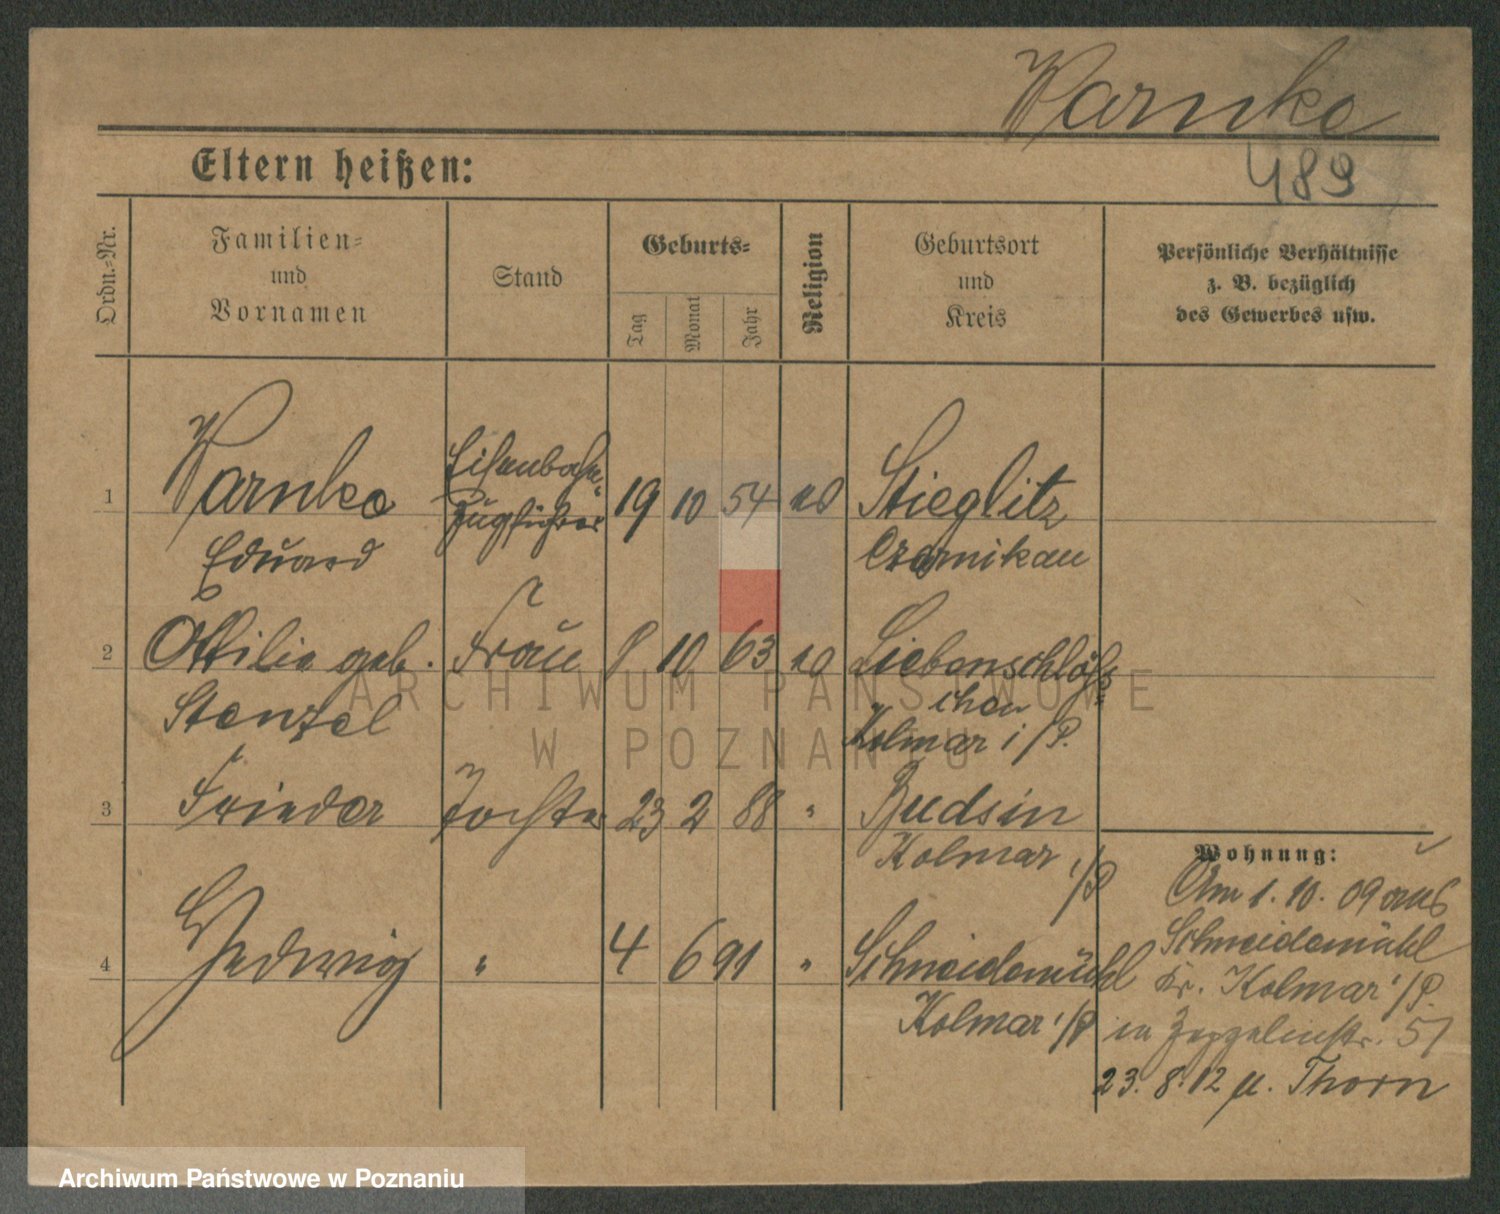 Warnke
Eltern heißen:
489
Ordn.=Nr.
Familien=
und
Vornamen
Stand
Geburts=
Tag
Monat
Jahr
Religion
Geburtsort
und
Kreis
Persönliche Verhältnisse
z. B. bezüglich
des Gewerbes usw.
1
Warnke
Eduard
Eisenbahn-
Zugführer
19 10 54
Stieglitz
Czarnikau
2
Ottilie geb.
Stenzel
Frau
10 63
Liebenschlöß=
chen
Kolmar i/P.
3
Frieder
Tochter
23 2 88 "
Budsin
Kolmar i/P
4
Hedwig
"
4 6 91 "
Schneidemühl
Kolmar i/P
Wohnung:
Am 1. 10. 09 aus
Schneidemühl
Kr. Kolmar i/P.
in Zeppelinstr. 51
23. 8. 12 n. Thorn
ARCHIWUM PAŃSTWOWE
W POZNANIU
Archiwum Państwowe w Poznaniu